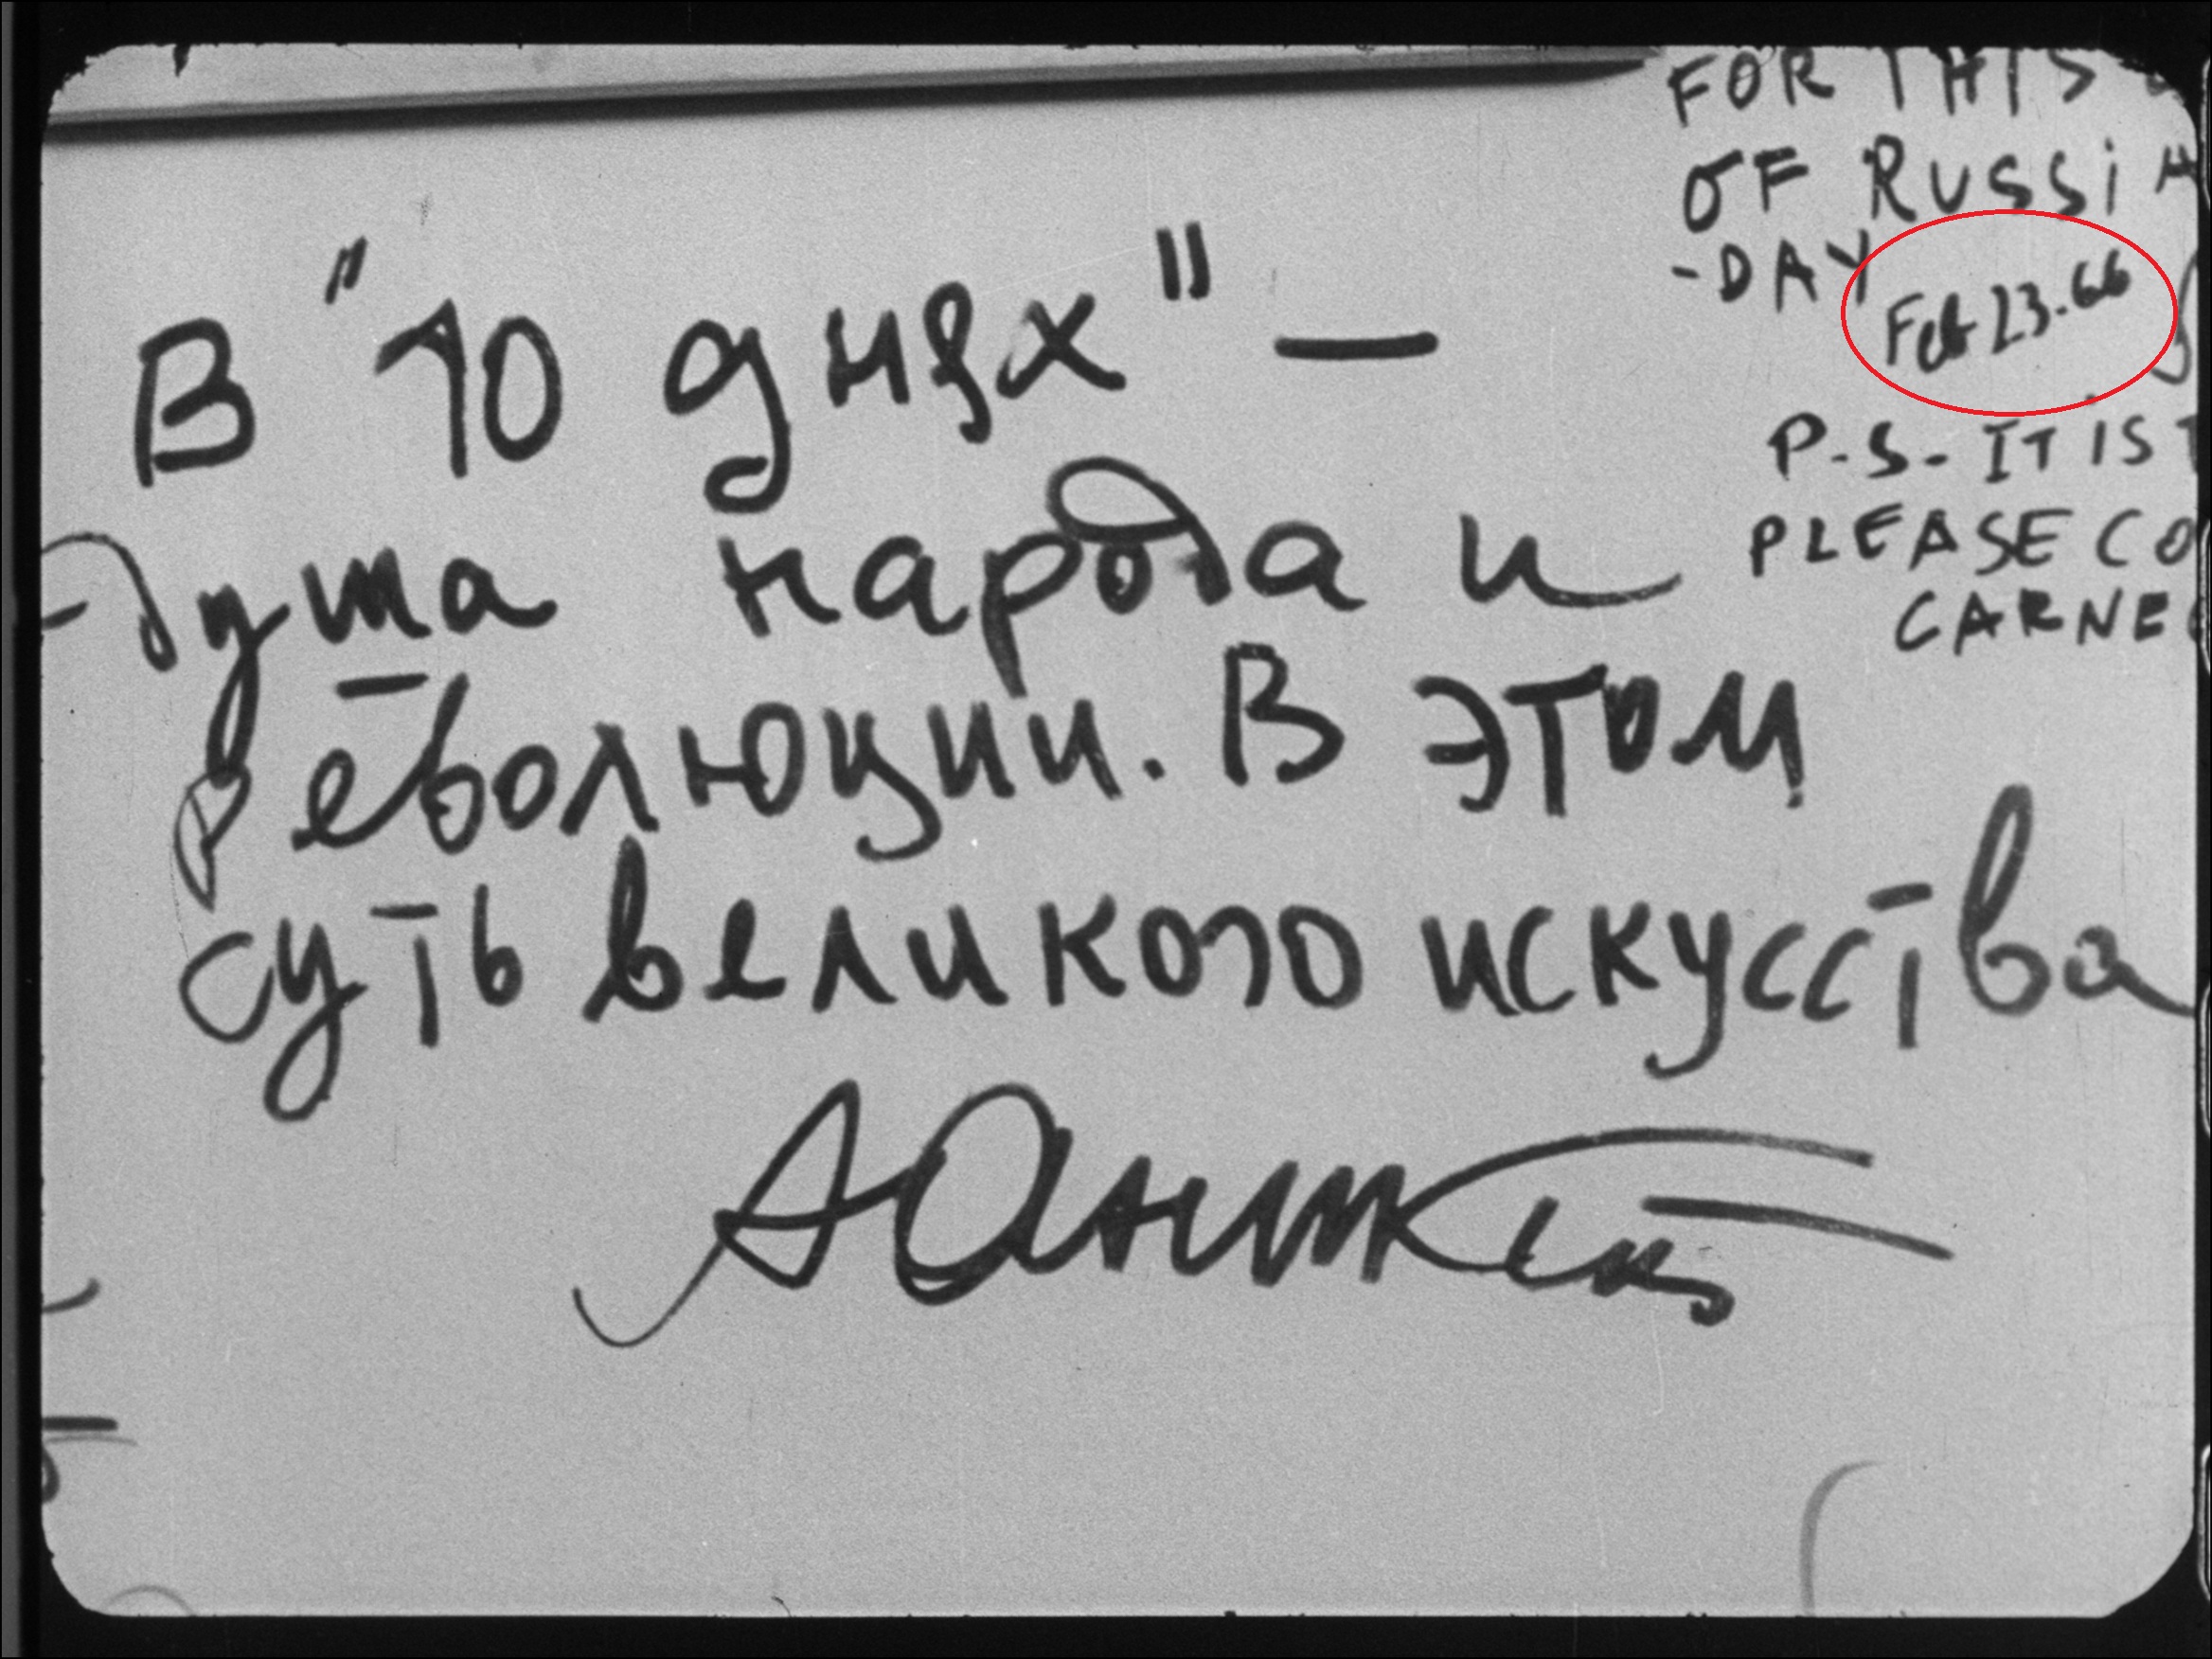 В "10 днях" —
душа народа и
революции. В этом
суть великого искусства
FOR THIS
OF RUSSIA
-DAY
Feb 23.66
P.S. - IT IS
PLEASE CO
CARNE